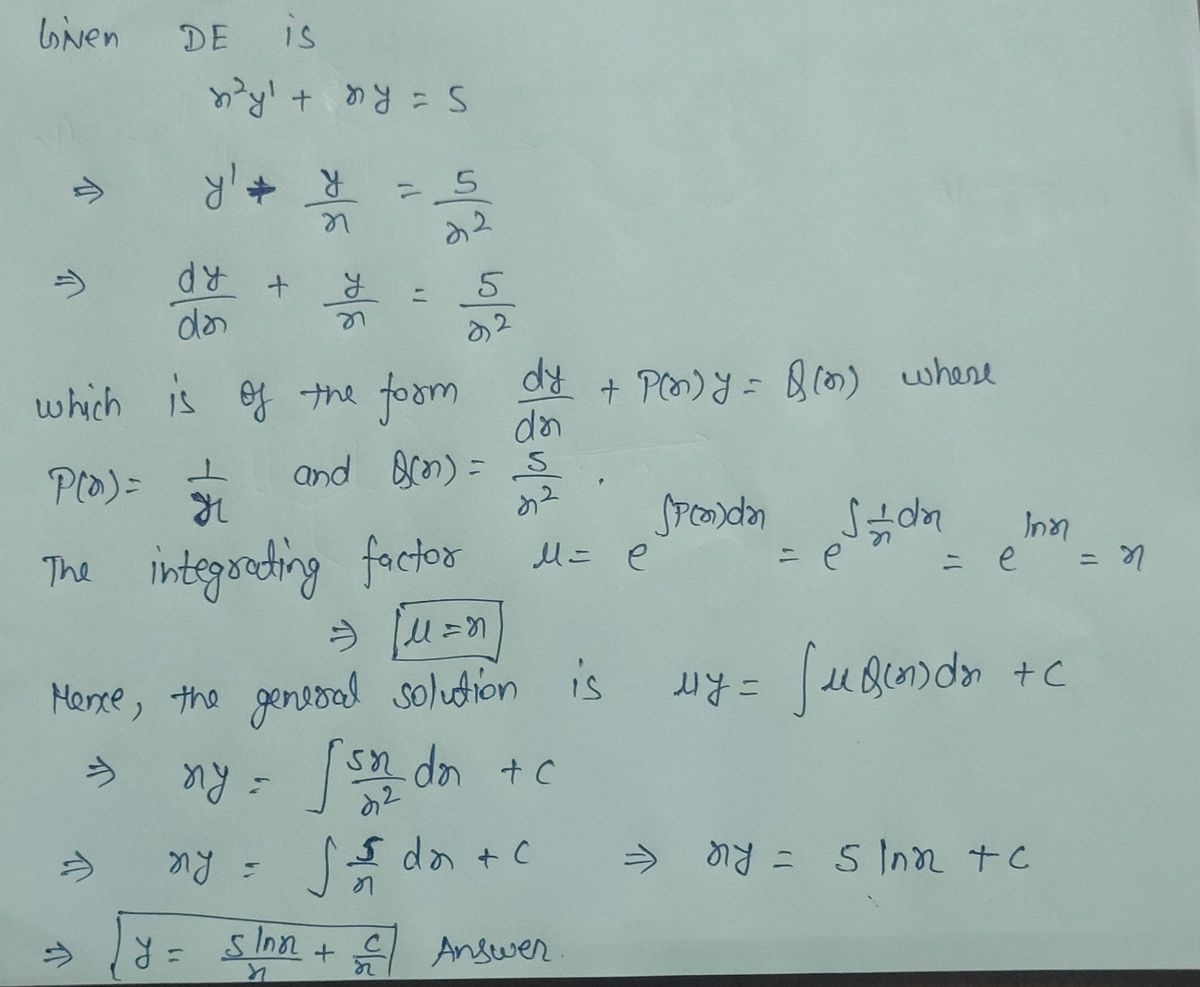 Given DE is
x²y' + xy = 5
⇒ y' + y/x = 5/x²
⇒ dy/dx + y/x = 5/x²
which is of the form dy/dx + P(x)y = Q(x) where
P(x) = 1/x and Q(x) = 5/x² .
The integrating factor μ = e^∫P(x)dx = e^∫1/x dx = e^lnx = x
⇒ μ = x
Hence, the general solution is μy = ∫μQ(x)dx + C
⇒ xy = ∫5x/x² dx + C
⇒ xy = ∫5/x dx + C ⇒ xy = 5 lnx + C
⇒ y = 5 lnx/x + C/x Answer.